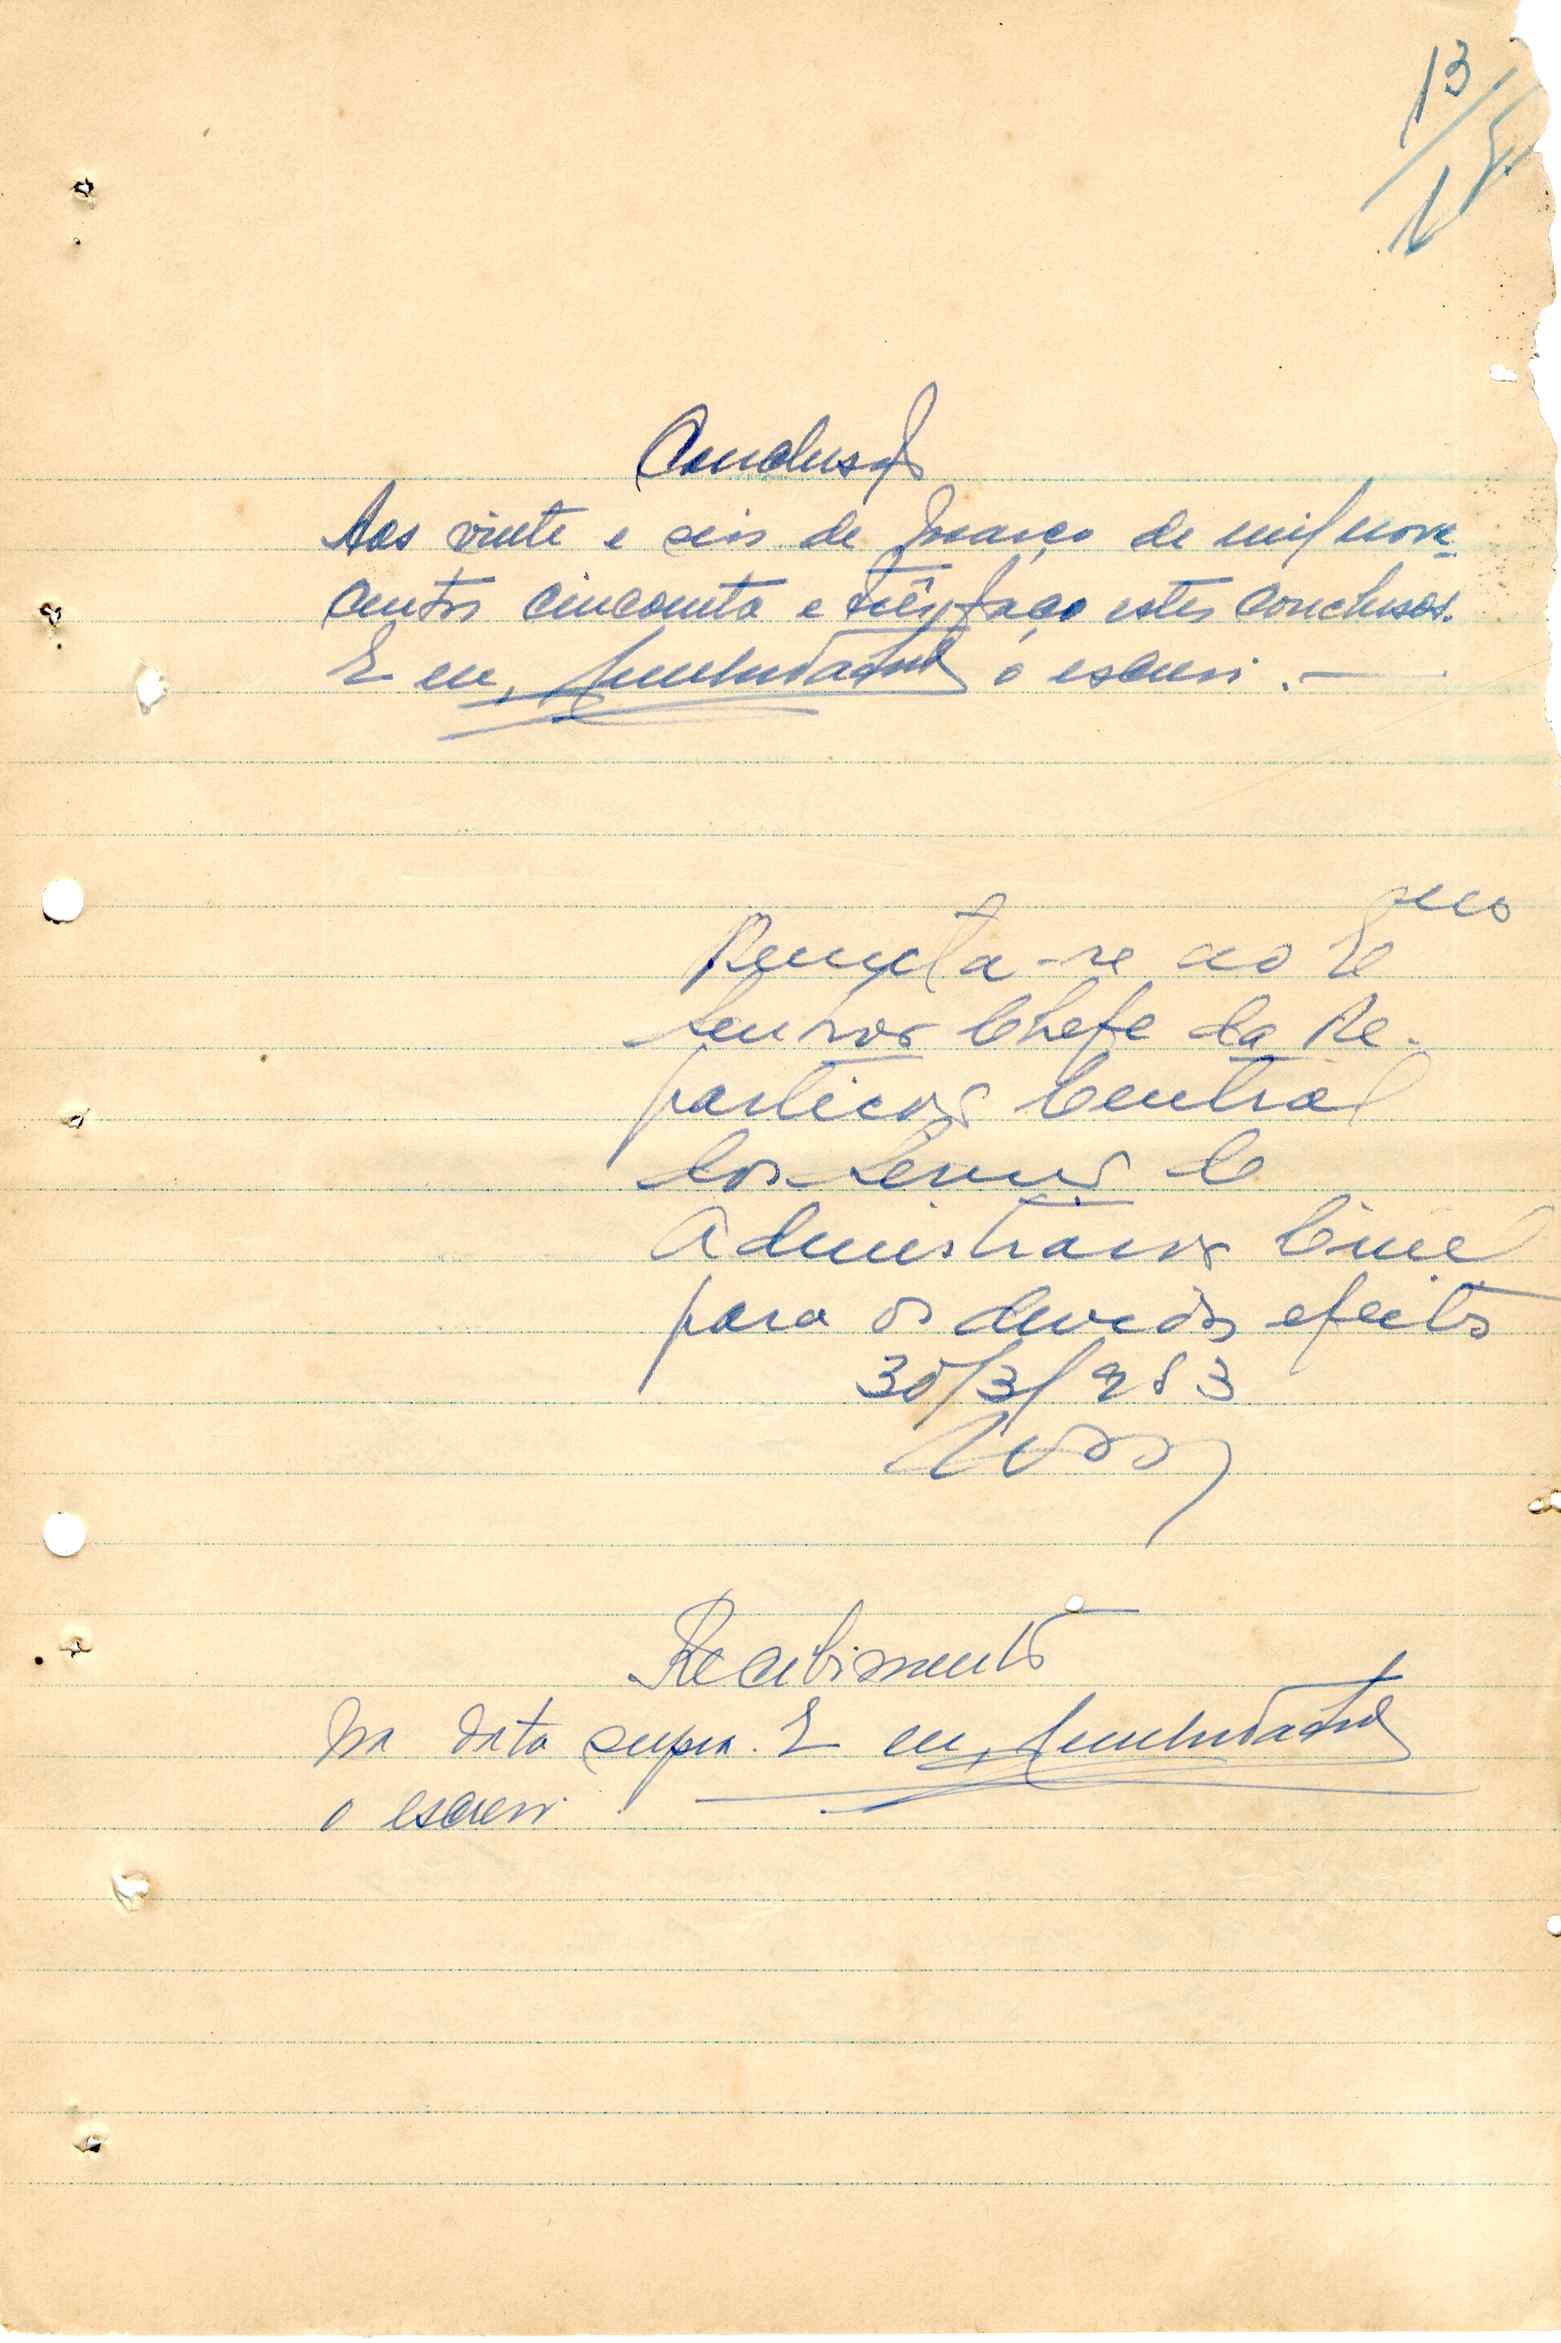 13
Conclusão
Aos vinte e seis de Março de mil nove-
centos cincoenta e três, faço estes conclusos.
E eu, o escrevi. —
Remeta-se ao
Senhor Chefe da Re-
partição Central
dos Serviços de
Administração Civil
para os devidos efeitos
30/3/953
Recebimento
Na data supra. E eu,
o escrevi.